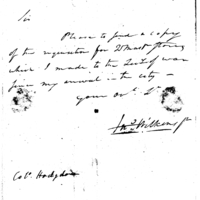 Sir
Please to send a copy
of the requisition for Qr Mast. stores,
which I made to the Sec'y of war
since my arrival in the city —
your ob. S.
Jno. Wilkins Jr
Col. Hodgdon